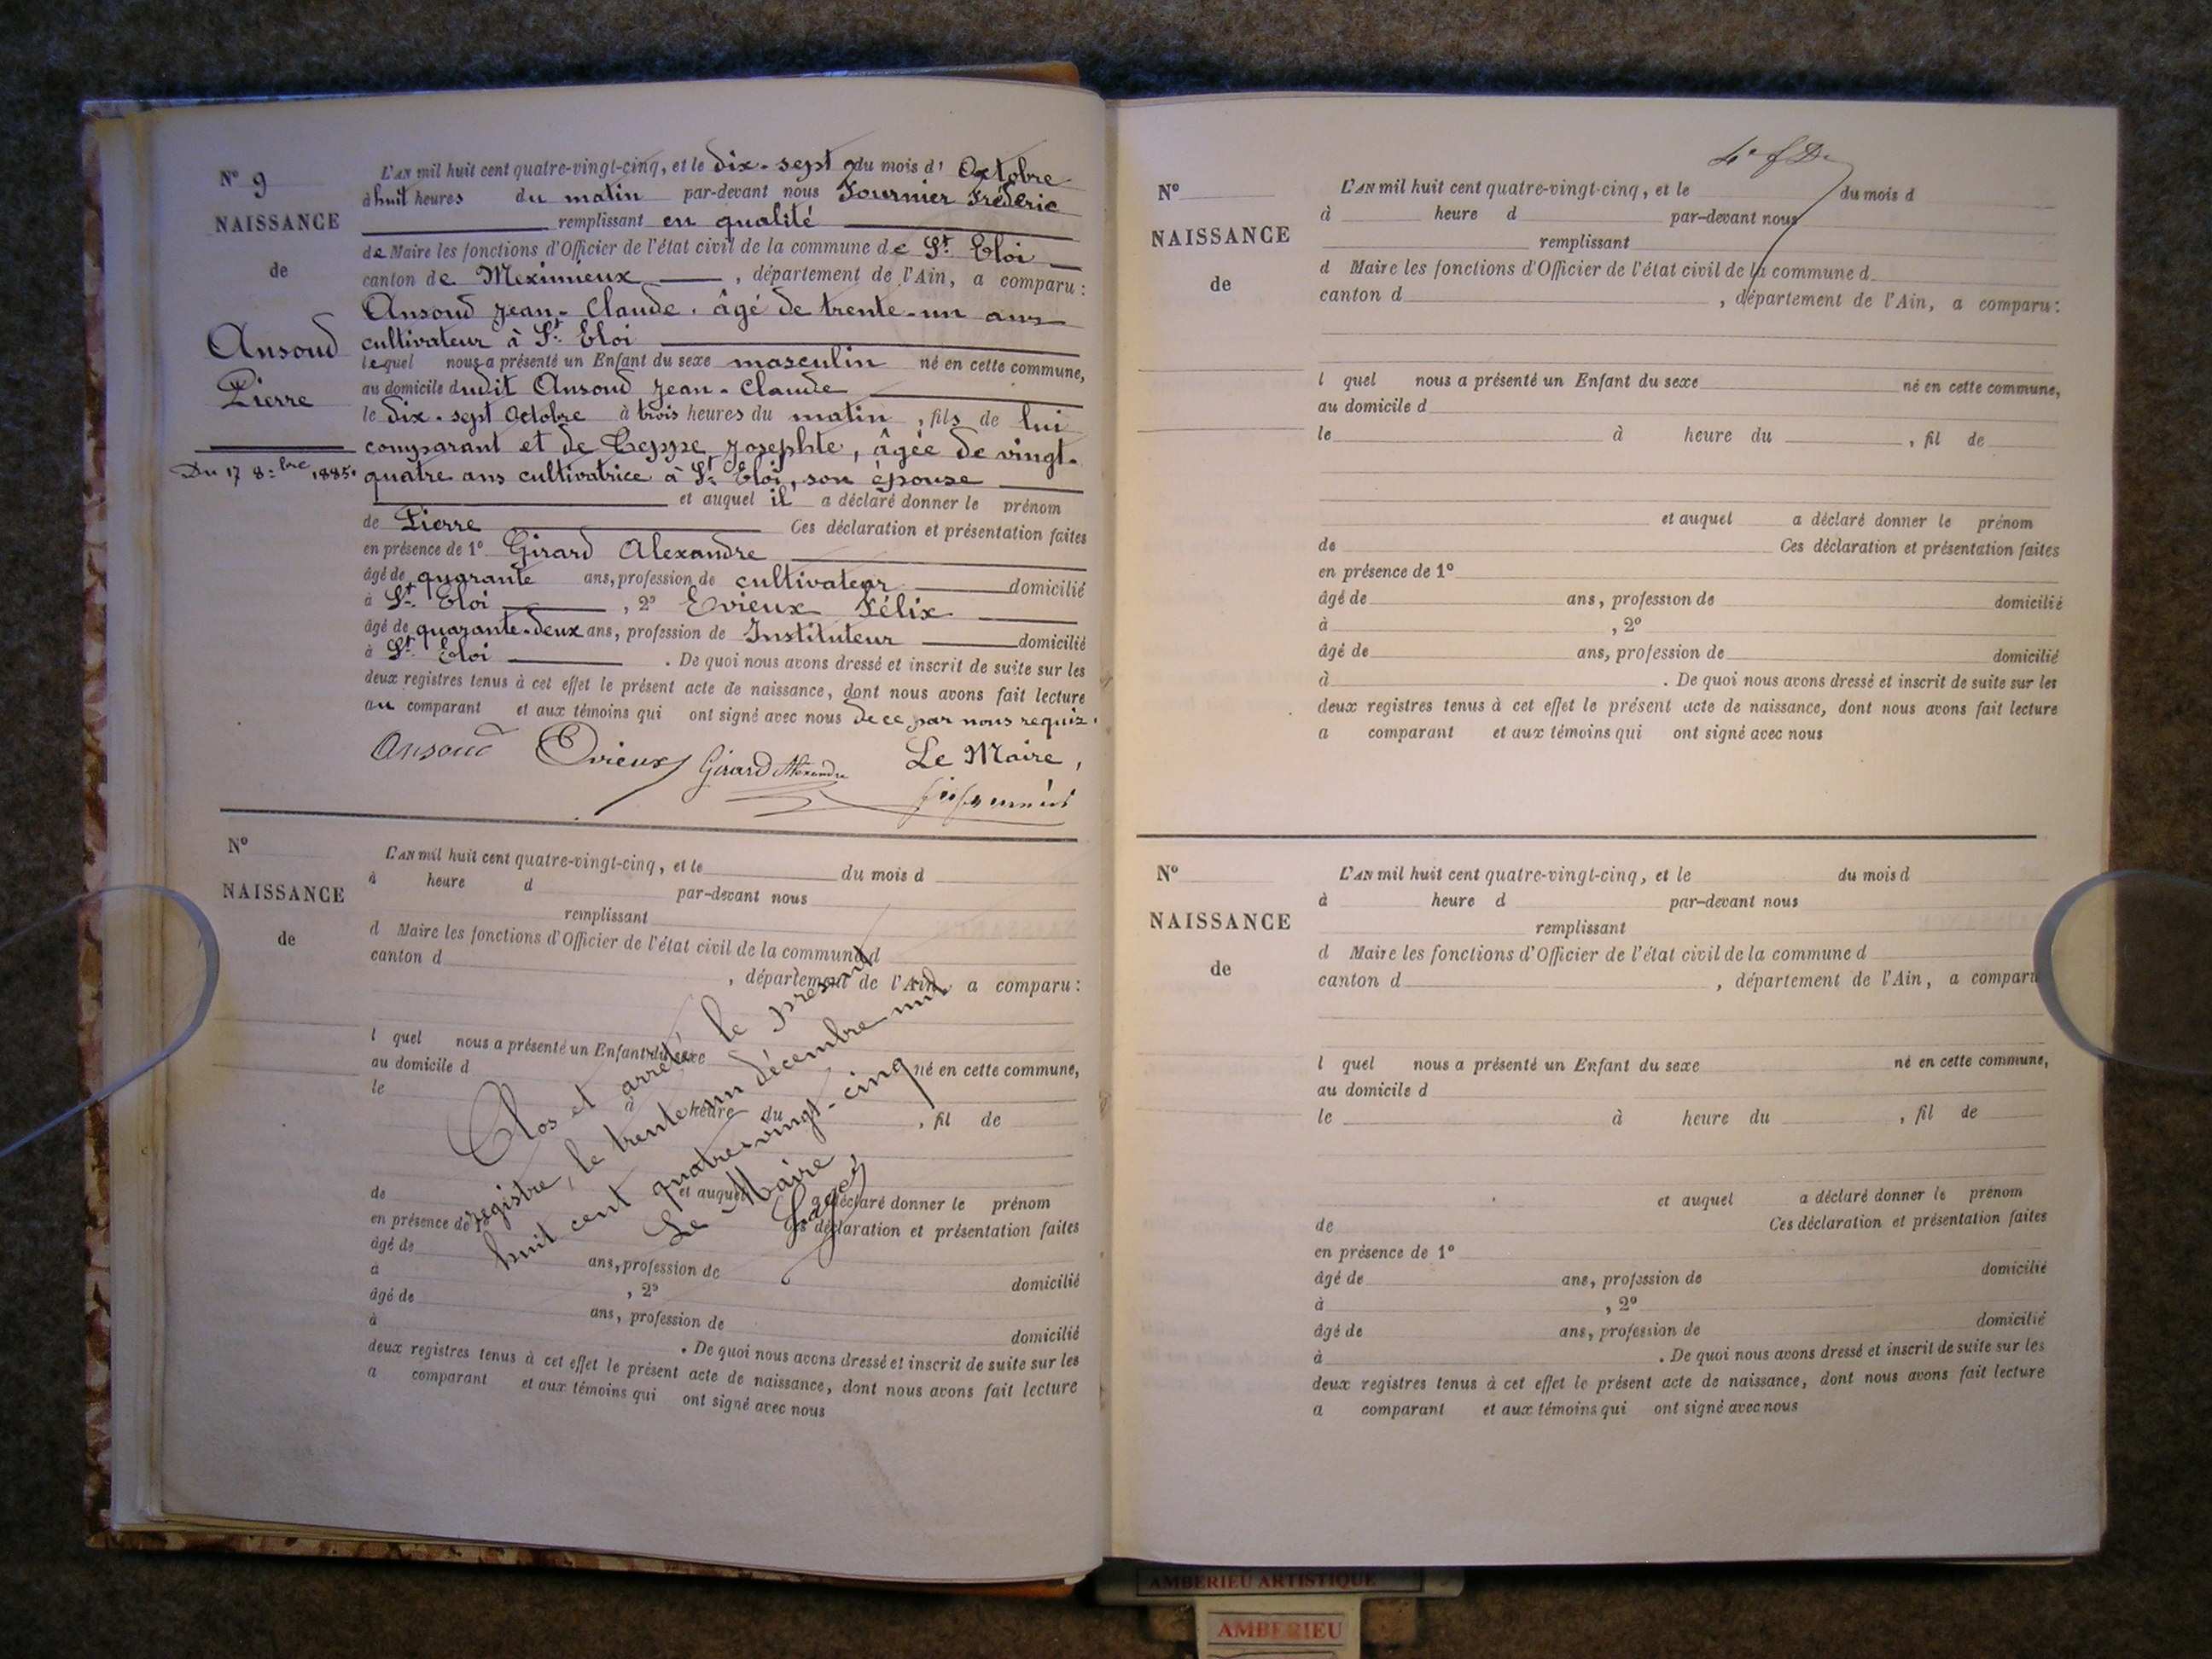 N° 9
NAISSANCE
de
Ansoud
Pierre
Du 17 8:bre 1885.
L'AN mil huit cent quatre-vingt-cinq, et le dix-sept du mois d' Octobre
à huit heures du matin par-devant nous Fournier Fréderic
remplissant en qualité
de Maire les fonctions d'Officier de l'état civil de la commune de St. Eloi
canton de Meximieux, département de l'Ain, a comparu :
Ansoud Jean-Claude, âgé de trente-un ans
cultivateur à St. Eloi
lequel nous a présenté un Enfant du sexe masculin né en cette commune,
au domicile dudit Ansoud Jean-Claude
le dix-sept Octobre à trois heures du matin, fils de lui
comparant et de Ceppe Josephte, âgée de vingt-
quatre ans cultivatrice à St. Eloi, son épouse
et auquel il a déclaré donner le prénom
de Pierre Ces déclaration et présentation faites
en présence de 1° Girard Alexandre
âgé de quarante ans, profession de cultivateur domicilié
à St. Eloi, 2° Evieux Félix
âgé de quarante-deux ans, profession de Instituteur domicilié
à St. Eloi. De quoi nous avons dressé et inscrit de suite sur les
deux registres tenus à cet effet le présent acte de naissance, dont nous avons fait lecture
au comparant et aux témoins qui ont signé avec nous de ce par nous requis.
Ansoud Evieux Girard Alexandre Le Maire,
N°
NAISSANCE
de
L'AN mil huit cent quatre-vingt-cinq, et le du mois d
à heure d par-devant nous
remplissant
d Maire les fonctions d'Officier de l'état civil de la commune d
canton d , département de l'Ain, a comparu :
l quel nous a présenté un Enfant du sexe né en cette commune,
au domicile d
le à heure du , fil de
et auquel a déclaré donner le prénom
de Ces déclaration et présentation faites
en présence de 1°
âgé de ans, profession de domicilié
à , 2°
âgé de ans, profession de domicilié
à . De quoi nous avons dressé et inscrit de suite sur les
deux registres tenus à cet effet le présent acte de naissance, dont nous avons fait lecture
a comparant et aux témoins qui ont signé avec nous
Clos et arrêté le présent
registre, le trente-un décembre mil
huit cent quatre-vingt-cinq
Le Maire,
N°
NAISSANCE
de
L'AN mil huit cent quatre-vingt-cinq, et le du mois d
à heure d par-devant nous
remplissant
d Maire les fonctions d'Officier de l'état civil de la commune d
canton d , département de l'Ain, a comparu :
l quel nous a présenté un Enfant du sexe né en cette commune,
au domicile d
le à heure du , fil de
et auquel a déclaré donner le prénom
de Ces déclaration et présentation faites
en présence de 1°
âgé de ans, profession de domicilié
à , 2°
âgé de ans, profession de domicilié
à . De quoi nous avons dressé et inscrit de suite sur les
deux registres tenus à cet effet le présent acte de naissance, dont nous avons fait lecture
a comparant et aux témoins qui ont signé avec nous
N°
NAISSANCE
de
L'AN mil huit cent quatre-vingt-cinq, et le du mois d
à heure d par-devant nous
remplissant
d Maire les fonctions d'Officier de l'état civil de la commune d
canton d , département de l'Ain, a comparu
l quel nous a présenté un Enfant du sexe né en cette commune,
au domicile d
le à heure du , fil de
et auquel a déclaré donner le prénom
de Ces déclaration et présentation faites
en présence de 1°
âgé de ans, profession de domicilié
à , 2°
âgé de ans, profession de domicilié
à . De quoi nous avons dressé et inscrit de suite sur les
deux registres tenus à cet effet le présent acte de naissance, dont nous avons fait lecture
a comparant et aux témoins qui ont signé avec nous
AMBERIEU ARTISTIQUE
AMBERIEU